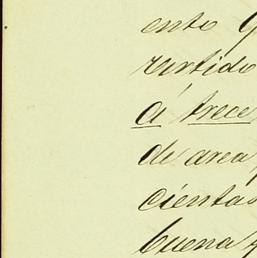 ento
rrtido
á trece
de area
cientas
buena